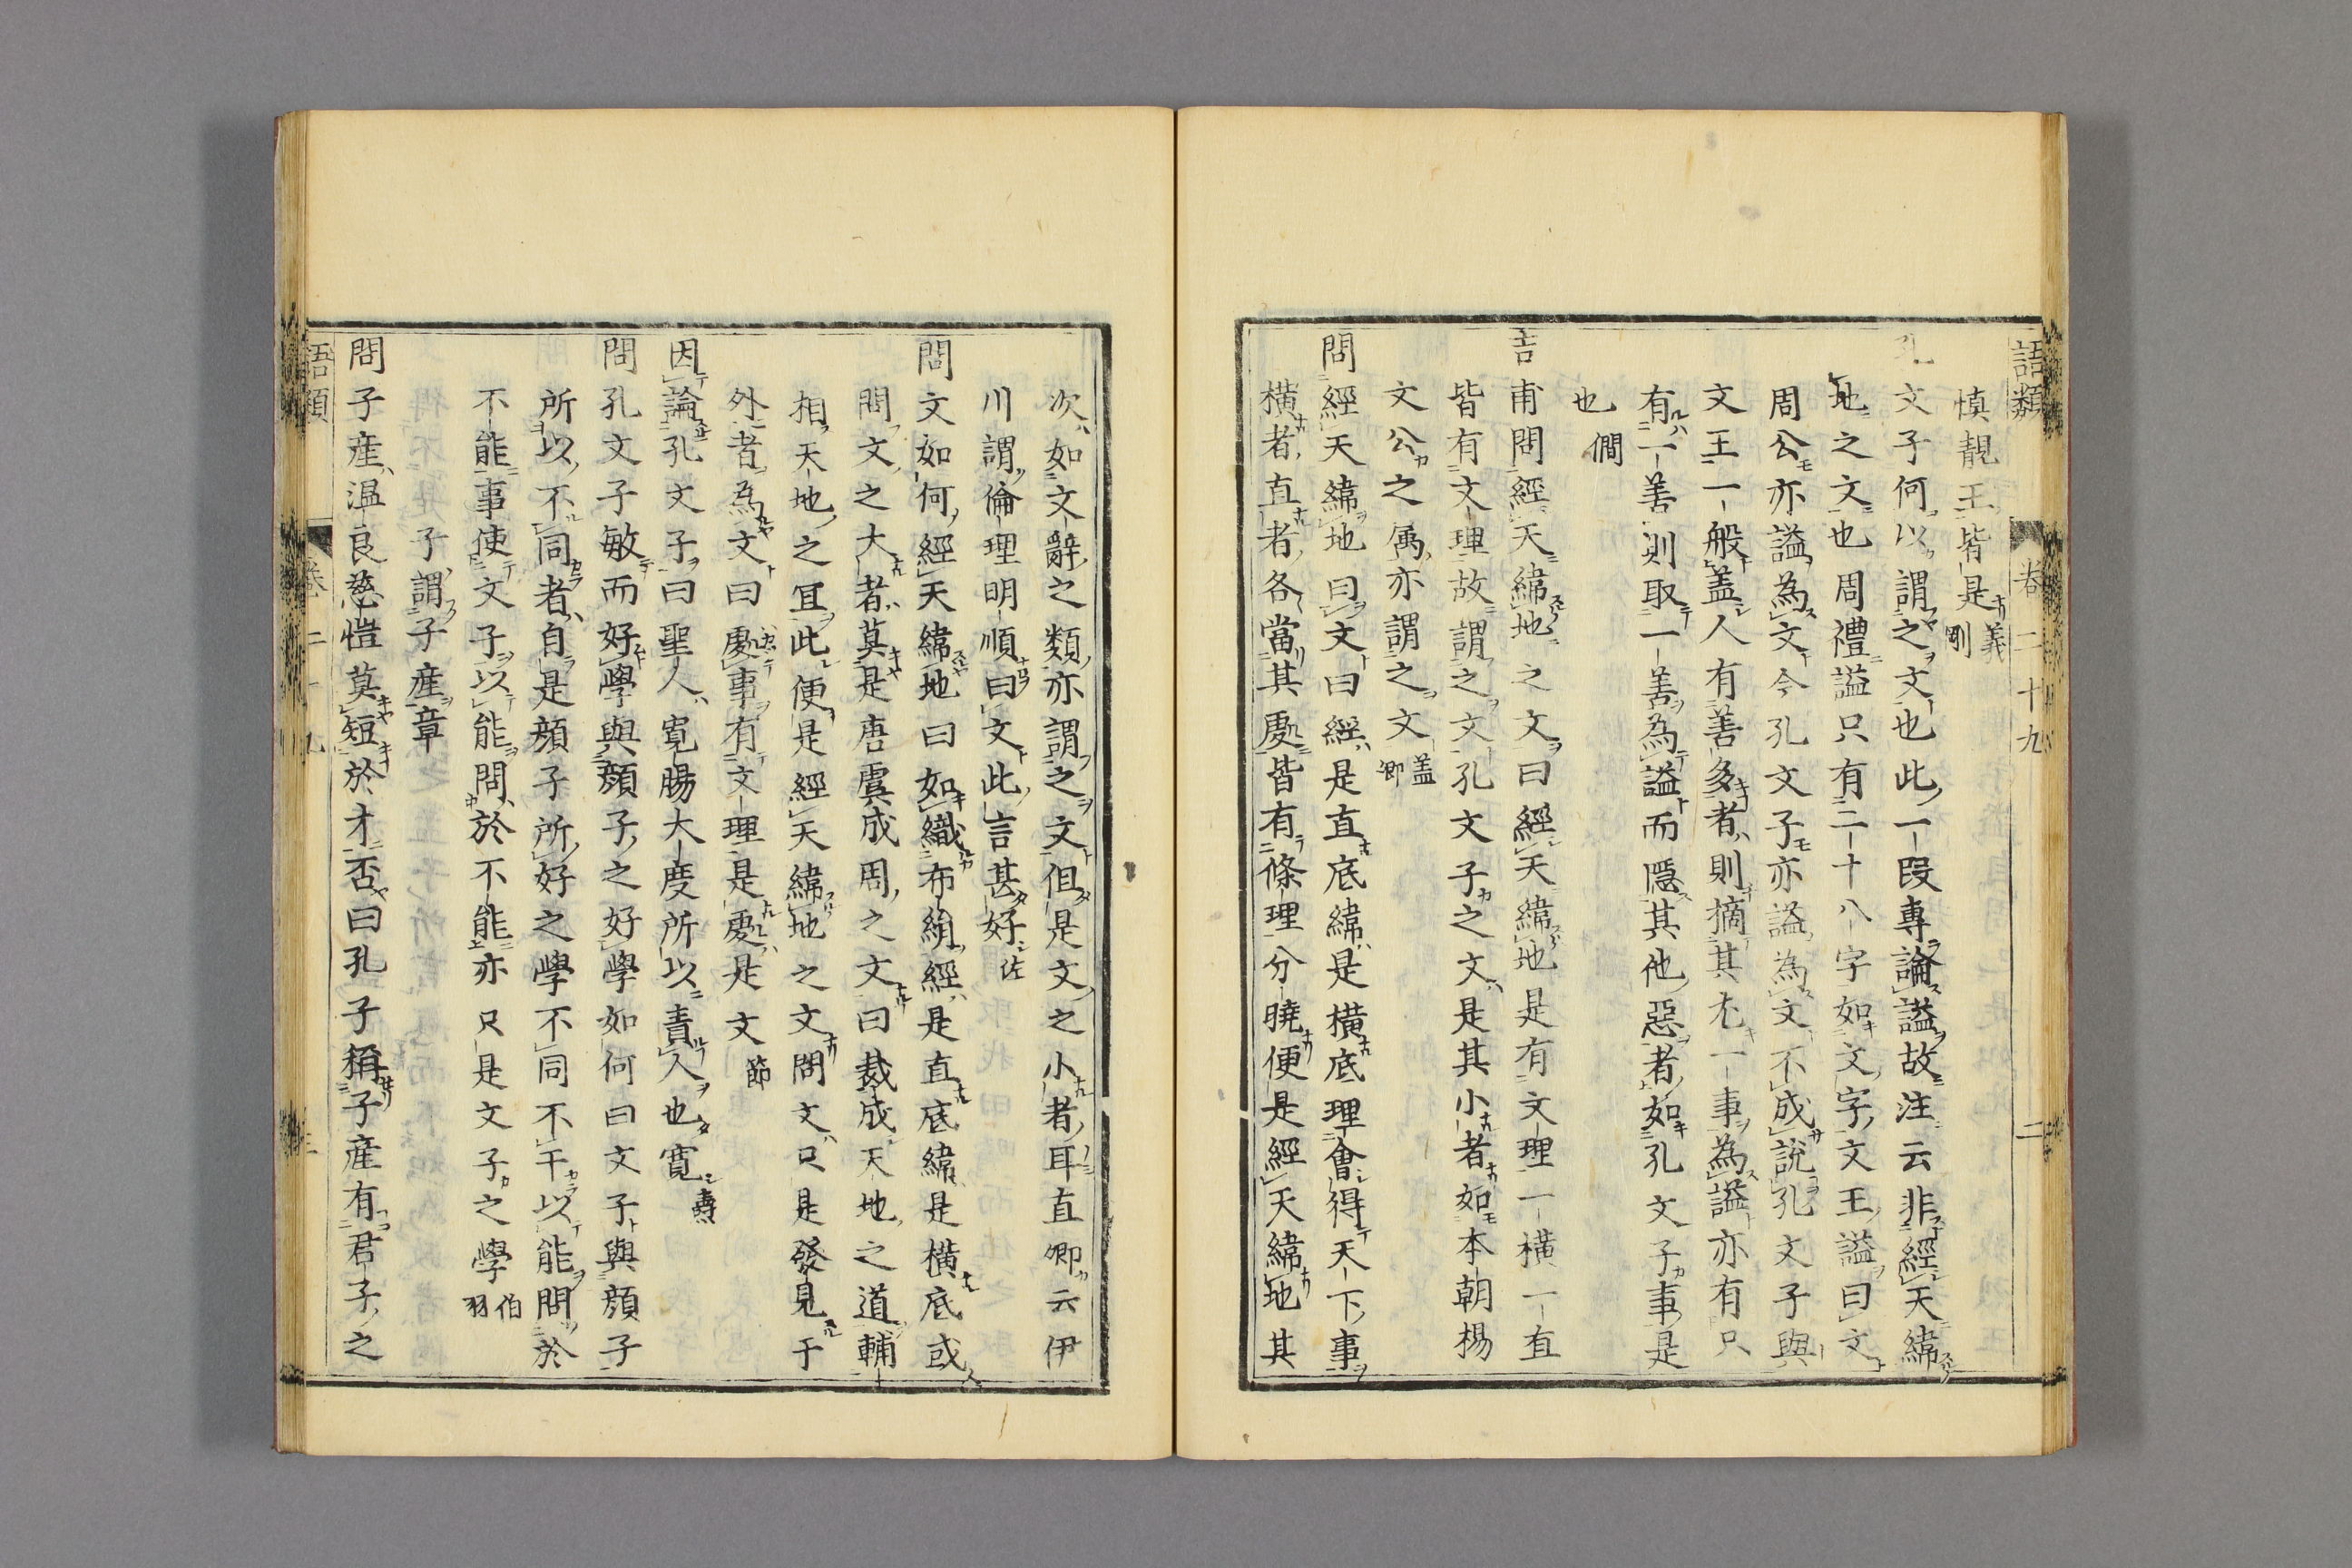 語類 卷二十九 二
慎靚王皆是義剛
孔文子何以謂之文也此一段專論謚故注云非經天緯
地之文也周禮謚只有二十八字如文字文王謚曰文
周公亦謚為文今孔文子亦謚為文不成説孔文子與
文王一般盖人有善多者則摘其尤一事為謚亦有只
有一善則取一善為謚而隱其他惡者如孔文子事是
也僩
吉甫問經天緯地之文曰經天緯地是有文理一橫一直
皆有文理故謂之文孔文子之文是其小者如本朝楊
文公之属亦謂之文盖卿
問經天緯地曰文曰經是直底緯是橫底理會得天下事
橫者直者各當其處皆有條理分曉便是經天緯地其
次如文辭之類亦謂之文但是文之小者耳直卿云伊
川謂倫理明順曰文此言甚好佐
問文如何經天緯地曰如織布絹經是直底緯是橫底或
問文之大者莫是唐虞成周之文曰裁成天地之道輔
相天地之宜此便是經天緯地之文問文只是發見于
外者為文曰處事有文理是處是文節
因論孔文子曰聖人寛腸大度所以責人也寛燾
問孔文子敏而好學與顔子之好學如何曰文子與顔子
所以不同者自是顔子所好之學不同不干以能問於
不能事使文子以能問於不能亦只是文子之學伯羽
子謂子産章
問子産温良慈愷莫短於才否曰孔子稱子産有君子之
語類 卷二十九 三